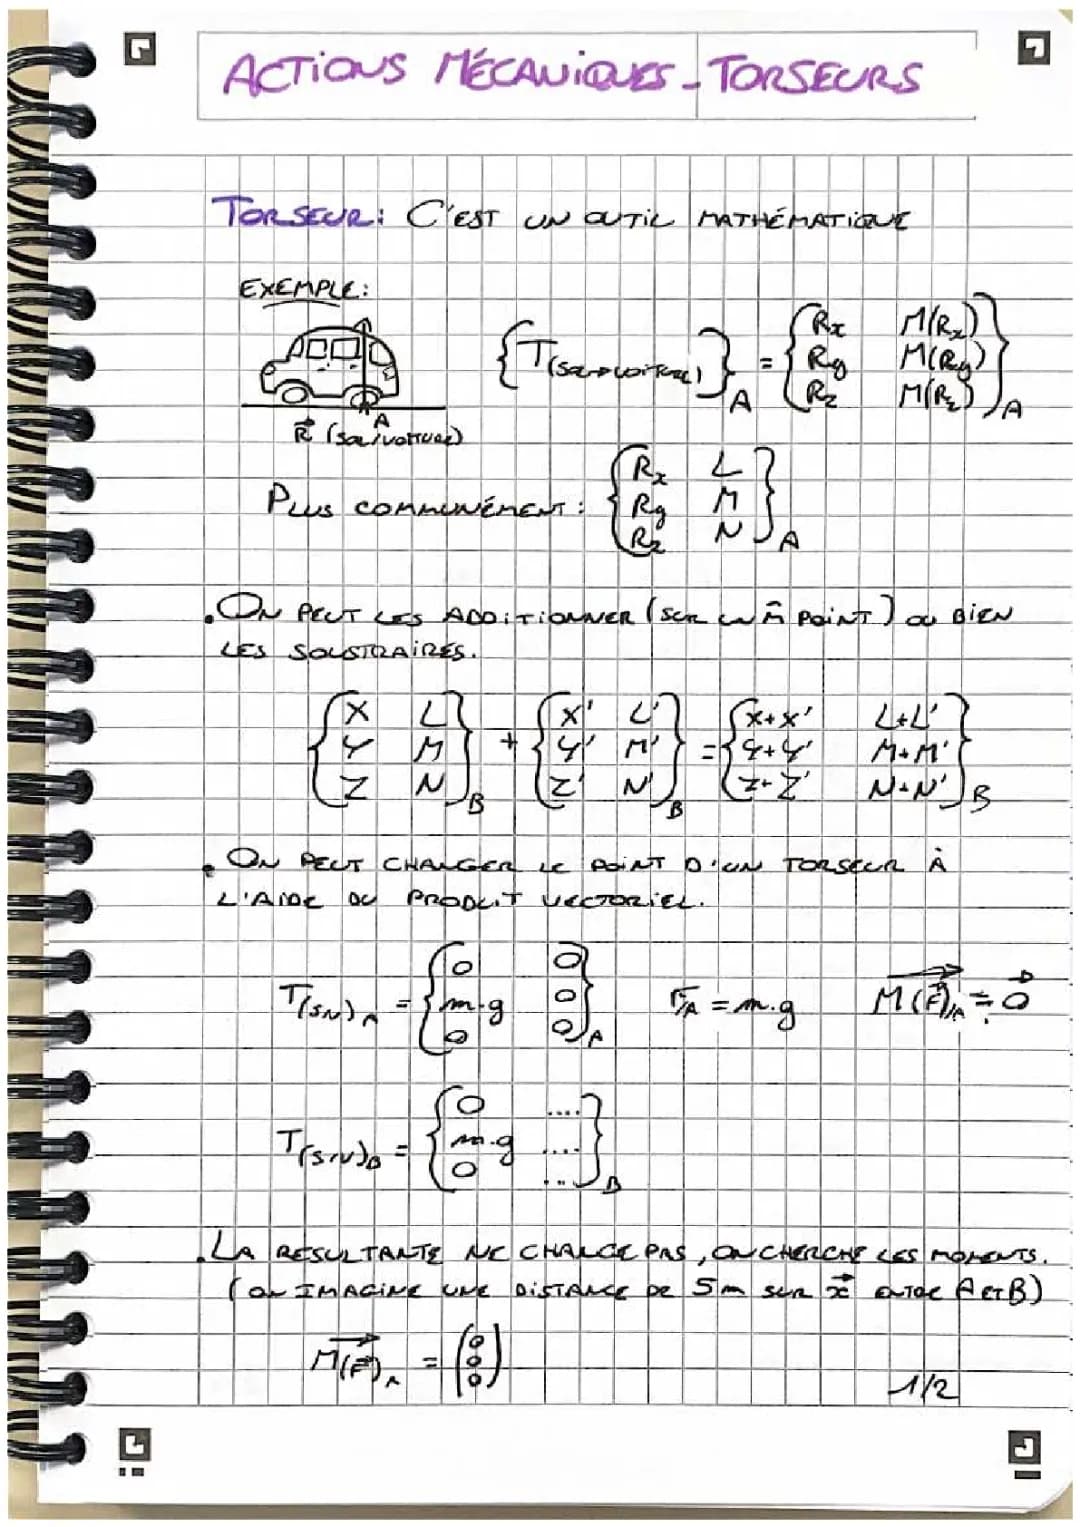 ACTIONS MÉCANIQUES - TORSEURS
TORSEUR: C'EST UN OUTIL MATHÉMATIQUE
EXEMPLE:
{T(sol→voiture)}A = {Rx M(Rx) Ry M(Ry) Rz M(Rz)}A
A
R⃗ (sol/voiture)
PLUS COMMUNÉMENT : {Rx L Ry M Rz N}A
. ON PEUT LES ADDITIONNER (SUR UN m̂ POINT) OU BIEN
LES SOUSTRAIRES.
{X L Y M Z N}B + {X' L' Y' M' Z' N'}B = {X+X' L+L' Y+Y' M+M' Z+Z' N+N'}B
. ON PEUT CHANGER LE POINT D'UN TORSEUR À
L'AIDE DU PRODUIT VECTORIEL.
T(S/V)A = {0 0 m.g 0 0 0}A F/A = m.g M(F⃗)/A = 0⃗
T(S/V)B = {0 .... m.g .... 0 ...}B
. LA RESULTANTE NE CHANGE PAS, ON CHERCHE LES MOMENTS.
(ON IMAGINE UNE DISTANCE DE 5m SUR x⃗ ENTRE A ET B)
M(F⃗)A = (0 0 0)
1/2